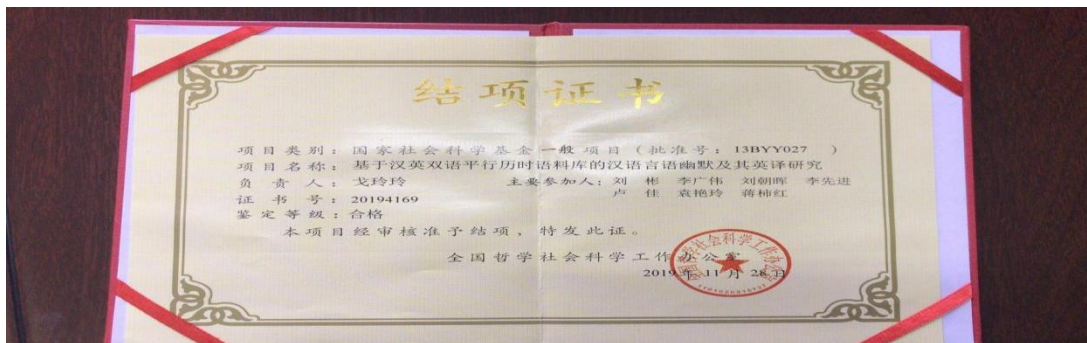 结项证书
项目类别：国家社会科学基金一般项目（批准号：13BYY027 ）
项目名称：基于汉英双语平行历时语料库的汉语言语幽默及其英译研究
负责人：戈玲玲 主要参加人：刘 彬 李广伟 刘朝晖 李先进
卢 佳 袁艳玲 蒋柿红
证书号：20194169
鉴定等级：合格
本项目经审核准予结项，特发此证。
全国哲学社会科学工作办公室
2019年 11月 28日